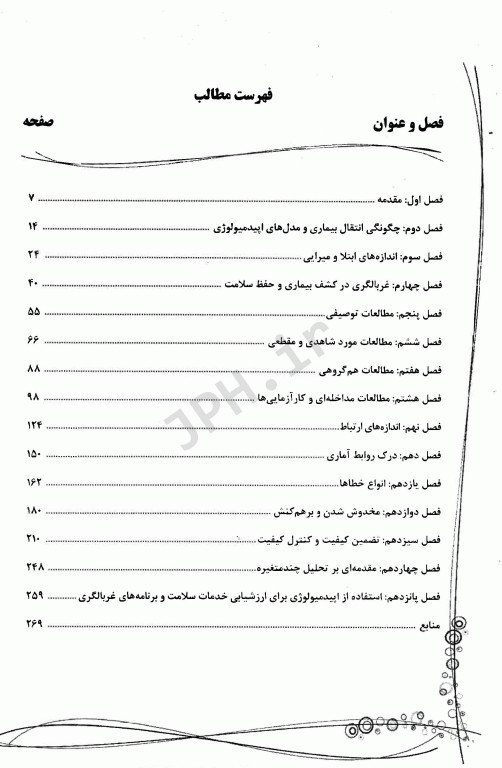 فهرست مطالب
فصل و عنوان صفحه
فصل اول: مقدمه ........ ۷
فصل دوم: چگونگی انتقال بیماری و مدل‌های اپیدمیولوژی ........ ۱۴
فصل سوم: اندازه‌های ابتلا و میرایی ........ ۲۴
فصل چهارم: غربالگری در کشف بیماری و حفظ سلامت ........ ۴۰
فصل پنجم: مطالعات توصیفی ........ ۵۵
فصل ششم: مطالعات مورد شاهدی و مقطعی ........ ۶۶
فصل هفتم: مطالعات هم‌گروهی ........ ۸۸
فصل هشتم: مطالعات مداخله‌ای و کارآزمایی‌ها ........ ۹۸
فصل نهم: اندازه‌های ارتباط ........ ۱۲۴
فصل دهم: درک روابط آماری ........ ۱۵۰
فصل یازدهم: انواع خطاها ........ ۱۶۲
فصل دوازدهم: مخدوش شدن و برهم‌کنش ........ ۱۸۰
فصل سیزدهم: تضمین کیفیت و کنترل کیفیت ........ ۲۱۰
فصل چهاردهم: مقدمه‌ای بر تحلیل چندمتغیره ........ ۲۴۸
فصل پانزدهم: استفاده از اپیدمیولوژی برای ارزشیابی خدمات سلامت و برنامه‌های غربالگری ........ ۲۵۹
منابع ........ ۲۶۹
JPH.ir